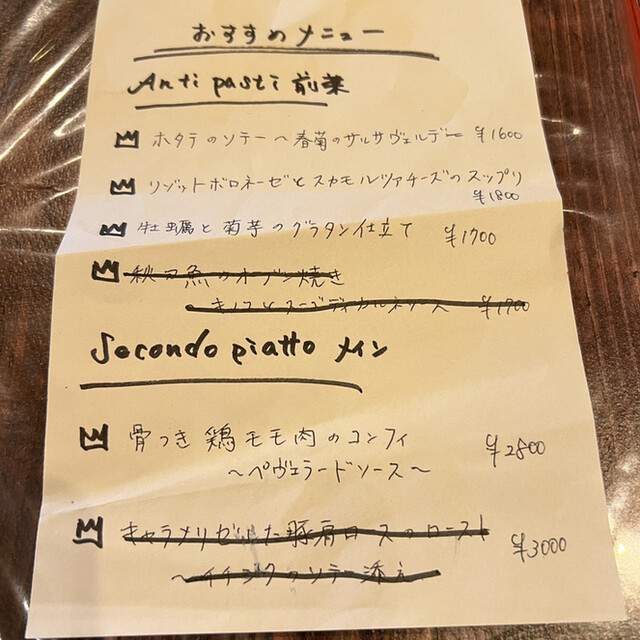 おすすめメニュー
Antipasti 前菜
ホタテのソテー～春菊のサルサヴェルデー ¥1600
リゾットボロネーゼとスカモルツァチーズのスップリ
¥1800
牡蠣と菊芋のグラタン仕立て ¥1700
秋刀魚のオーブン焼き
¥1700
Secondo piatto メイン
骨つき鶏モモ肉のコンフィ ¥2800
～ペヴェラードソース～
キャラメリゼした豚肩ロースのロースト
¥3000
～イチジクのソテー添え